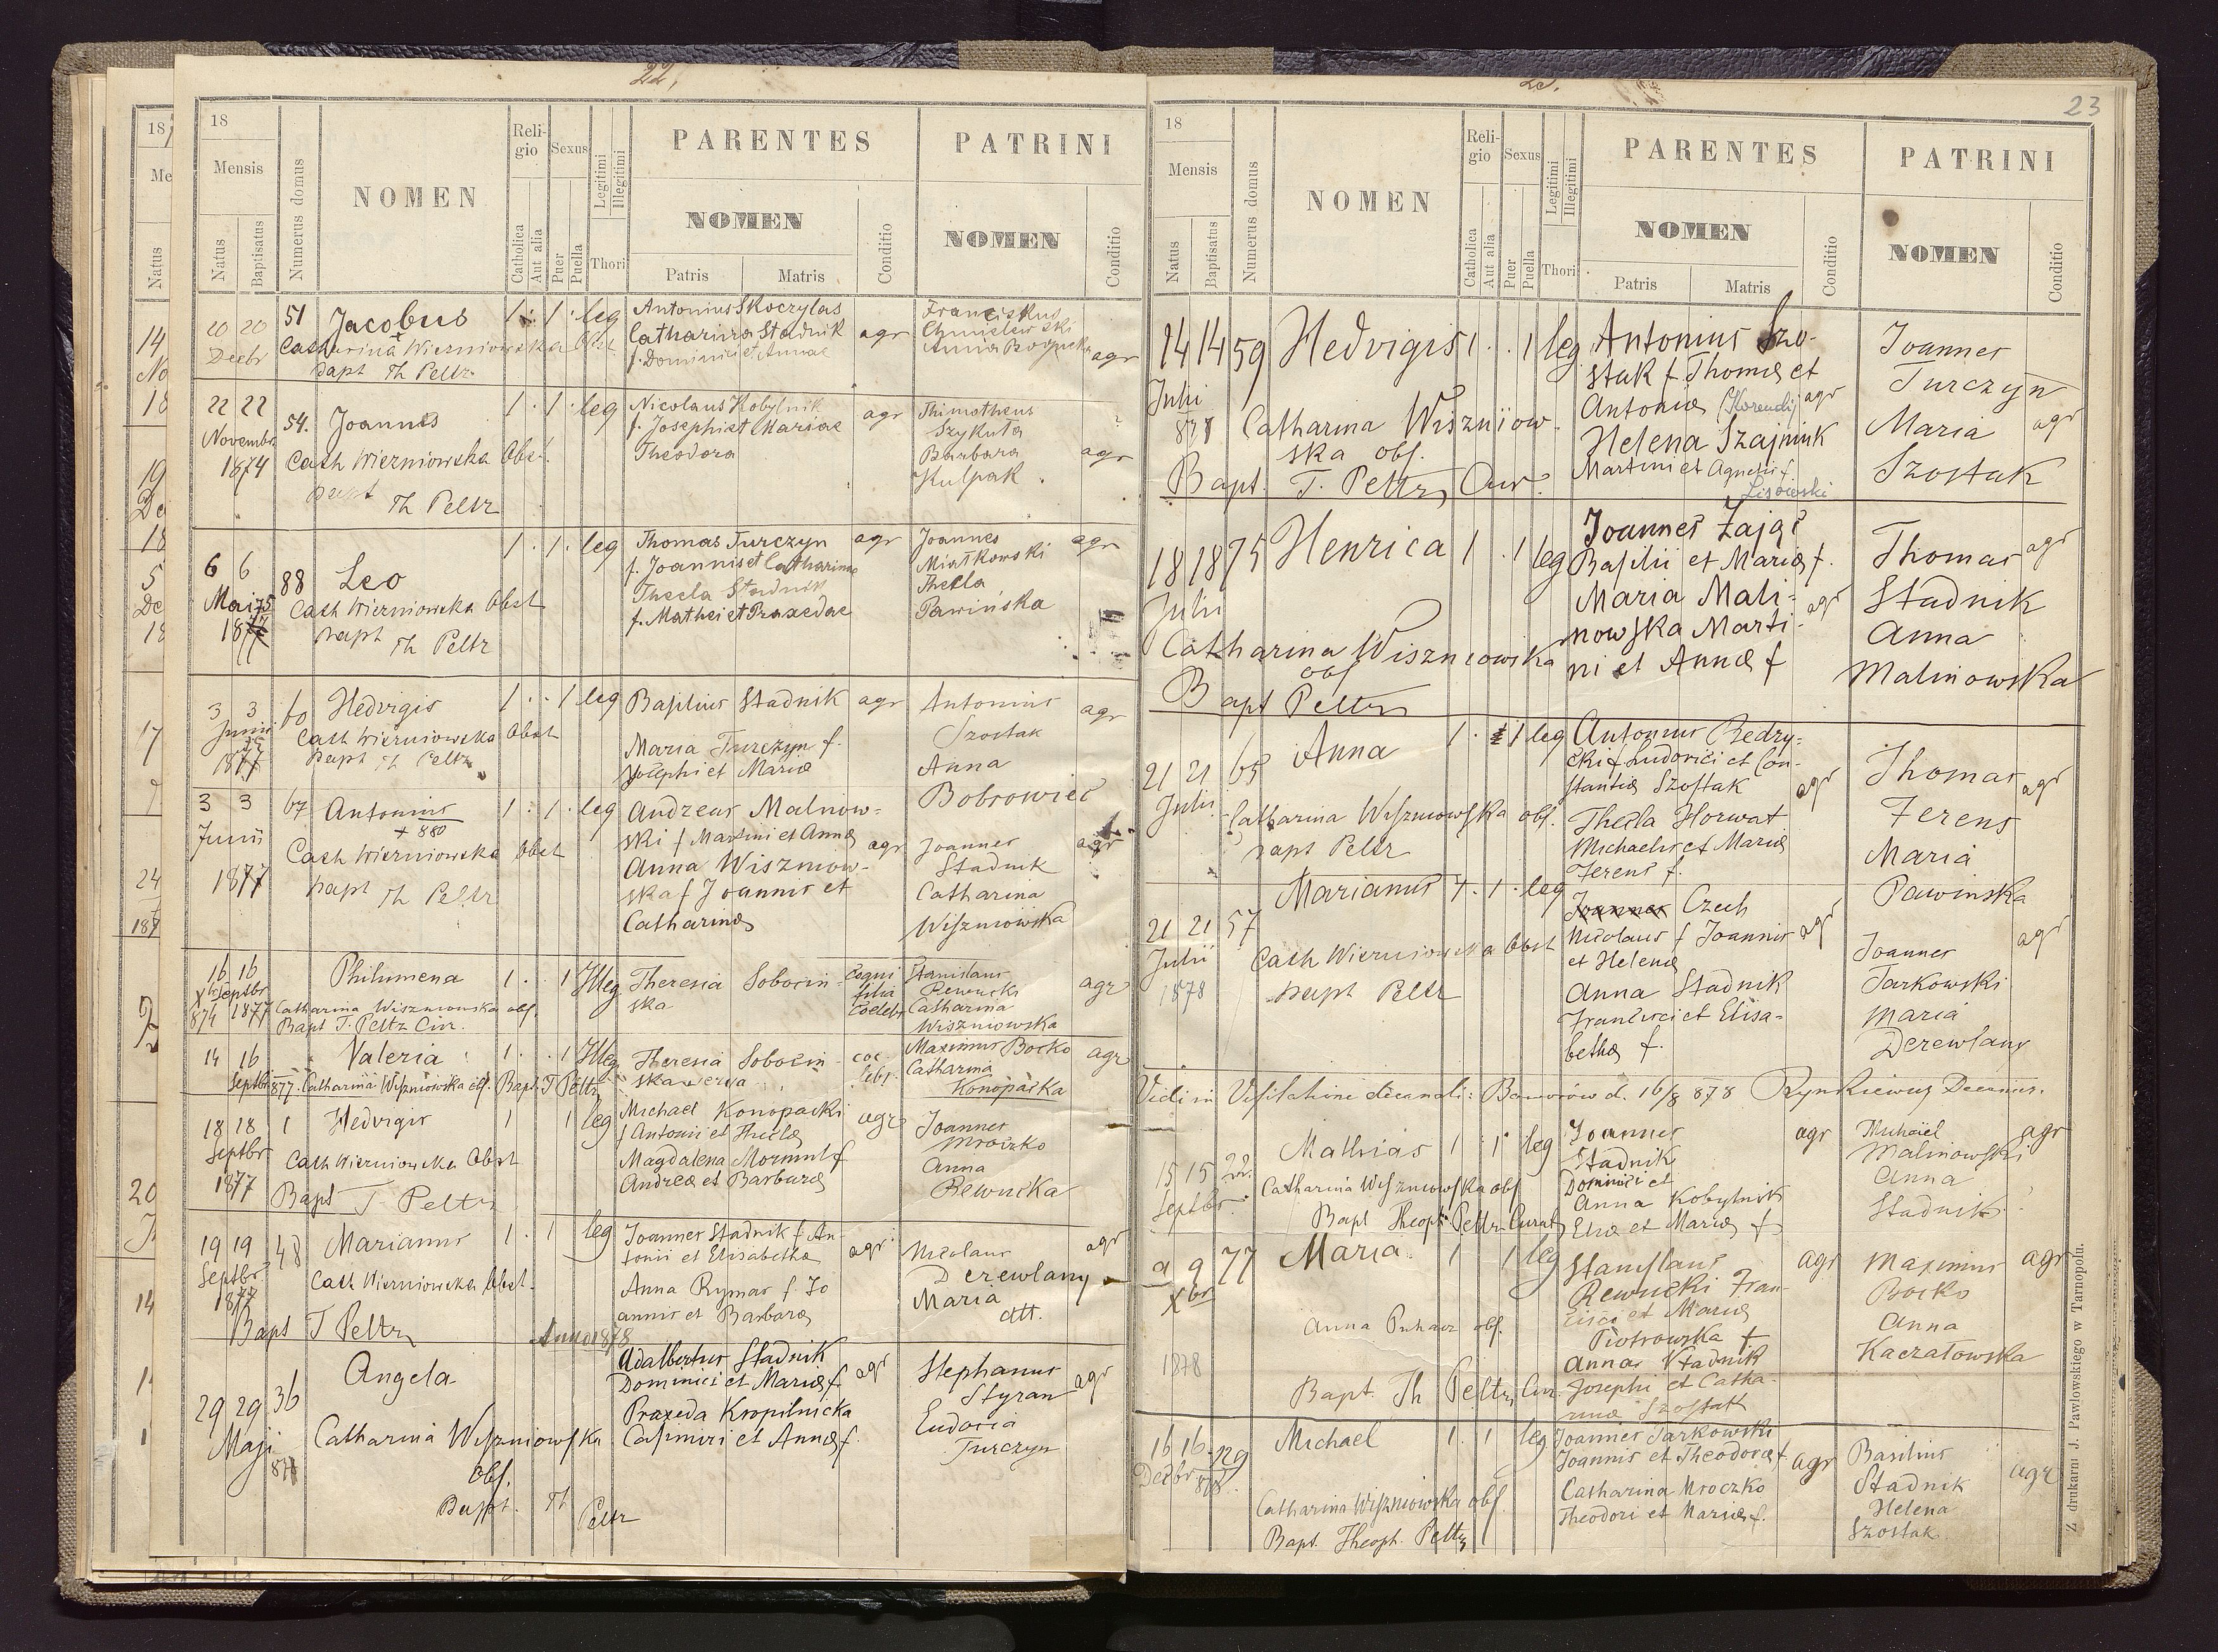 22,
18
Mensis
Natus
Baptisatus
Numerus domus
NOMEN
Religio
Catholica
Aut alia
Sexus
Puer
Puella
Legitimi
Illegitimi
Thori
PARENTES
NOMEN
Patris
Matris
Conditio
PATRINI
NOMEN
Conditio
20 20 51 Jacobus 1 · 1 · leg Antonius Skoczylas
Decbr Catharina Wierniowska Obst Catharina Stadnik agr
f. Dominici et Annae
Franciskus
Chmielewski
Anna
agr
bapt Th Peltz
22 22 54. Joannes 1 · 1 · leg Nicolaus Kobylnik agr Thimotheus
Novembr f. Josephi et Mariae Szykuła
1874 Cath Wierniowska Obst. Theodora Barbara agr
bapt Kulpak
Th Peltz
6 6 88 Leo 1 · 1 · leg Thomas Turczyn agr Joannes agr
Mai 75 f. Joannis et Catharinae Miałkowski
187 Cath Wierniowska Obst Thecla Stadnik Thecla
bapt Th Peltz f. Mathei et Praxedae Pawińska
3 3 60 Hedvigis 1 · · 1 leg Basilius Stadnik agr Antonius agr
Junii Cath Wierniowska Obst Szostak
1877 bapt Th Peltz Maria Turczyn f. Anna
Josephi et Mariæ Bobrowiec
3 3 67 Antonius 1 · 1 · leg Andreas Malinow-
+ 880
Junii ski f Martini et Annæ agr Joannes agr
Cath Wierniowska Obst Anna Wisznow- Stadnik
1877 bapt Th Peltz ska f Joannis et Catharina
Catharinæ Wiszniowska
16 16 Philumena 1 · · 1 Illeg Theresia Sobocin- Stanislaus agr
Septbr ska filia Rewucki
874 1877 Catharina Wiszniowska obs. Catharina
Bapt T. Peltz Cur. Wiszniowska
14 16 Valeria 1 · · 1 Illeg Theresia Sobocin- Maximus Bocko agr
Septbr 877 Catharina Wiszniowska obs. Bapt T Peltz ska Catharina
Konopacka
18 18 1 Hedvigis 1 1 leg Michael Konopacki agr Joannes
Septbr f Antonii et Theclæ Mroczko
Cath Wierniowska Obst Magdalena Mormul f Anna
1877 Andreæ et Barbaræ Rewucka
Bapt T Peltz
19 19 48 Marianus 1 · 1 leg Joannes Stadnik f An- agr
Septbr tonii et Elisabethæ agr Nicolaus
1877 Cath Wierniowska Obst. Anna Rymar f Jo Derewlany
annis et Barbaræ Maria
att.
Bapt T Peltz
Anno 1878
29 29 36 Angela Adalbertus Stadnik agr Stephanus
Maji Dominici et Mariæ f Styran agr
878 Catharina Wiszniowska Praxeda Kropilnicka Eudocia
obs. Casimiri et Annæ f Turczyn
Bapt. Th Peltz
23
18
Mensis
Natus
Baptisatus
Numerus domus
NOMEN
Religio
Catholica
Aut alia
Sexus
Puer
Puella
Legitimi
Illegitimi
Thori
PARENTES
NOMEN
Patris
Matris
Conditio
PATRINI
NOMEN
Conditio
14 14 59 Hedvigis 1 · · 1 leg Antonius Szo- Joannes
Julii stak f Thomæ et Turczyn
878 Catharina Wiszniow- Antoniæ (Korendij) agr Maria agr
ska obs. Helena Szajniuk Szostak
Bapt. T. Peltz Cur. Martini et Agnetis f
Lisowski
18 18 75 Henrica 1 · 1 leg Joannes Zając Thomas agr
Julii Basilii et Mariæ f. Stadnik
Maria Mali- agr Anna
nowska Marti- Malinowska
Catharina Wiszniowska ni et Annæ f
obs
Bapt Peltz
21 21 65 Anna 1 · 1 leg Antonius Redzy-
Julii cki f Ludovici et Con- Thomas agr
stantiæ Szostak agr Ferens
Catharina Wiszniowska obs. Thecla Horwat Maria
bapt Peltz Michaelis et Mariæ Pawinska
Ferens f.
21 21 57 Marianus 1 · 1 · leg Joannes Czech
Julii Nicolaus f Joannis agr Joannes agr
1878 Cath Wierniowska Obst et Helenæ Tarkowski
bapt Peltz Anna Stadnik Maria
Francisci et Elisa- Derewlany
bethæ f.
Vidi in Visitatione decanali: Baworów d. 16/8 878 Rynkiewicz Decanus.
15 15 22. Mathias 1 · 1 leg Joannes agr Michael agr
Septbr. Stadnik Malinowski
Catharina Wiszniowska obs Dominici et Anna
Bapt Theoph Peltz Curat Anna Kobylnik Stadnik
Eliæ et Mariæ f
9 9 77 Maria 1 1 leg Stanislaus agr Maximus agr
Xbr Rewucki Fran- Bocko
cisci et Mariæ Anna
Anna Puhacz obs. Piotrowska f Kaczałowska
1878 Anna Stadnik
Bapt. Th Peltz Cur. Josephi et Catha-
rinæ Szostak
16 16 29 Michael 1 · 1 leg Joannes Tarkowski
Decbr 878. Joannis et Theodoræ f agr Basilius agr
Catharina Mroczko Stadnik
Catharina Wiszniowska obs Theodori et Mariæ f. Helena
Bapt. Theoph. Peltz Szostak
Z drukarni J. Pawłowskiego w Tarnopolu.